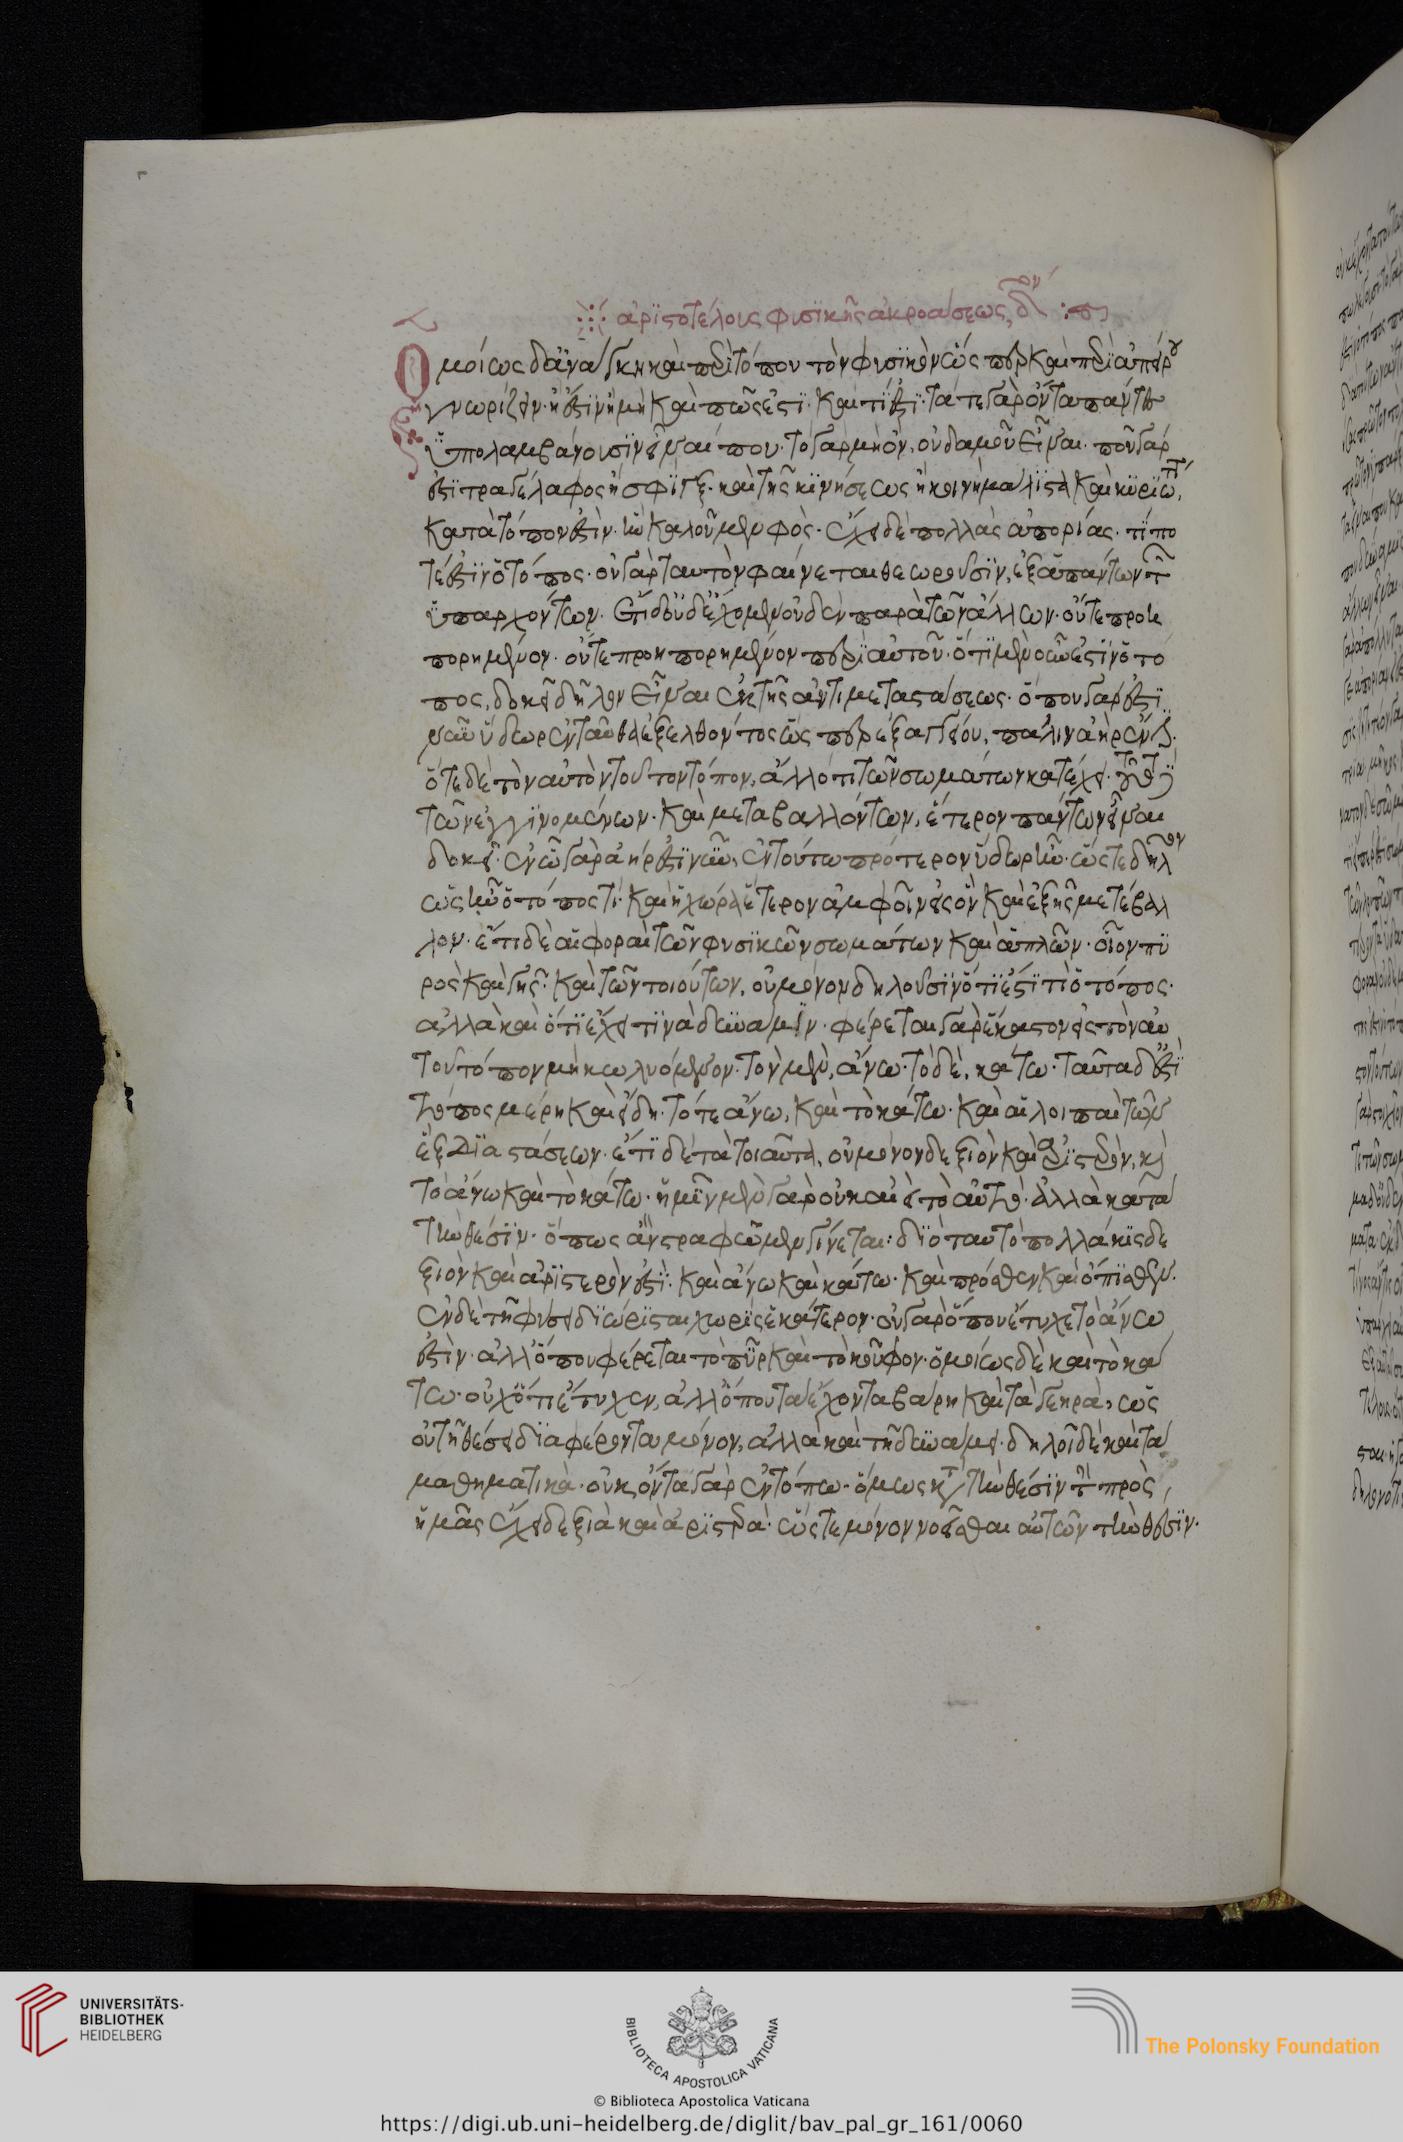 ἀριστοτέλους φυσικῆς ἀκροάσεως, δ
Ὁμοίως δ' ἀνάγκη καὶ περὶ τόπου τὸν φυσικὸν ὥσπερ καὶ περὶ ἀπείρου
γνωρίζειν· ἢ ἔστιν ἢ μὴ καὶ πῶς ἐστι· καὶ τί ἐστι· τά τε γὰρ ὄντα πάντες
ὑπολαμβάνουσιν εἶναί που· τὸ γὰρ μὴ ὂν, οὐδαμοῦ εἶναι· ποῦ γάρ
ἐστι τραγέλαφος ἢ σφίγξ· καὶ τῆς κινήσεως ἡ κοινὴ μάλιστα καὶ κυριωτ,
κατὰ τόπον ἐστὶν· ἣν καλοῦμεν φορὰν· ἔχει δὲ πολλὰς ἀπορίας· τί πο
τέ ἐστιν ὁ τόπος· οὐ γὰρ ταυτὸν φαίνεται θεωροῦσιν, ἐξ ἁπάντων τῶν
ὑπαρχόντων. ἔτι δ' οὐδ' ἔχομεν οὐδὲν παρὰ τῶν ἄλλων· οὔτε προη
πορημένον· οὔτε προηυπορημένον περὶ αὐτοῦ· ὅτι μὲν οὖν ἐστὶν ὁ τό
πος, δοκεῖ δῆλον εἶναι ἐκ τῆς ἀντιμεταστάσεως· ὅπου γάρ ἐστι
νῦν ὕδωρ ἐνταῦθα ἐξελθόντος ὥσπερ ἐξ ἀγγείου, πάλιν ἀὴρ ἐν
ὅτε δὲ τὸν αὐτὸν τοῦτον τόπον, ἄλλό τι τῶν σωμάτων κατέχει·
τῶν ἐγγινομένων· καὶ μεταβαλλόντων, ἕτερον πάντων εἶναι
δοκεῖ· ἐν ᾧ γὰρ ἀήρ ἐστι νῦν, ἐν τούτω πρότερον ὕδωρ ἦν· ὥστε δῆλον
ὡς ἦν ὁ τόπος τὶ· καὶ ἡ χώρα ἕτερον ἀμφοῖν εἰς ὃν καὶ ἐξ ἧς μετέβαλ
λον· ἔτι δὲ αἱ φοραὶ τῶν φυσικῶν σωμάτων καὶ ἁπλῶν· οἷον πυ
ρὸς καὶ γῆς· καὶ τῶν τοιούτων, οὐ μόνον δηλοῦσιν ὅτι ἐστί τι ὁ τόπος·
ἀλλὰ καὶ ὅτι ἔχει τινὰ δύναμιν· φέρεται γὰρ ἕκαστον εἰς τὸν αὑ
τοῦ τόπον μὴ κωλυόμενον· τὸν μὲν, ἄνω· τὸ δὲ, κάτω· ταῦτα δ' ἐστὶ
τόπος μέρη καὶ εἴδη· τό τε ἄνω, καὶ τὸ κάτω· καὶ αἱ λοιπαὶ τῶν
ἓξ διαστάσεων· ἔτι δὲ τὰ τοιαῦτα, οὐ μόνον δεξιὸν καὶ ἀριστερὸν, καὶ
τὸ ἄνω καὶ τὸ κάτω· ἡμῖν μὲν γὰρ οὐκ ἀεὶ τὸ αὐτό· ἀλλὰ κατὰ
τὴν θέσιν· ὅπως ἂν στραφῶμεν γίνεται· διὸ ταυτὸ πολλάκις δε
ξιὸν καὶ ἀριστερὸν ἐστὶ· καὶ ἄνω καὶ κάτω· καὶ πρόσθεν καὶ ὄπισθεν·
ἐν δὲ τῇ φύσει διώρισται χωρὶς ἑκάτερον· οὐ γὰρ ὅπου ἔτυχε τὸ ἄνω
ἐστὶν· ἀλλ' ὅπου φέρεται τὸ πῦρ καὶ τὸ κοῦφον· ὁμοίως δὲ καὶ τὸ κά
τω· οὐχ ὅτι ἔτυχεν, ἀλλ' ὅπου τὰ ἔχοντα βάρη καὶ τὰ γεηρὰ, ὡς
οὐ τῇ θέσει διαφέροντα μόνον, ἀλλὰ καὶ τῇ δυνάμει· δηλοῖ δὲ καὶ τὰ
μαθηματικὰ· οὐκ ὄντα γὰρ ἐν τόπω· ὅμως κατὰ τὴν θέσιν τὴν πρὸς
ἡμᾶς ἔχει δεξιὰ καὶ ἀριστερά· ὥστε μόνον νοεῖσθαι αὐτῶν τὴν θέσιν·
UNIVERSITÄTS-
BIBLIOTHEK
HEIDELBERG
BIBLIOTECA APOSTOLICA VATICANA
© Biblioteca Apostolica Vaticana
The Polonsky Foundation
https://digi.ub.uni-heidelberg.de/diglit/bav_pal_gr_161/0060